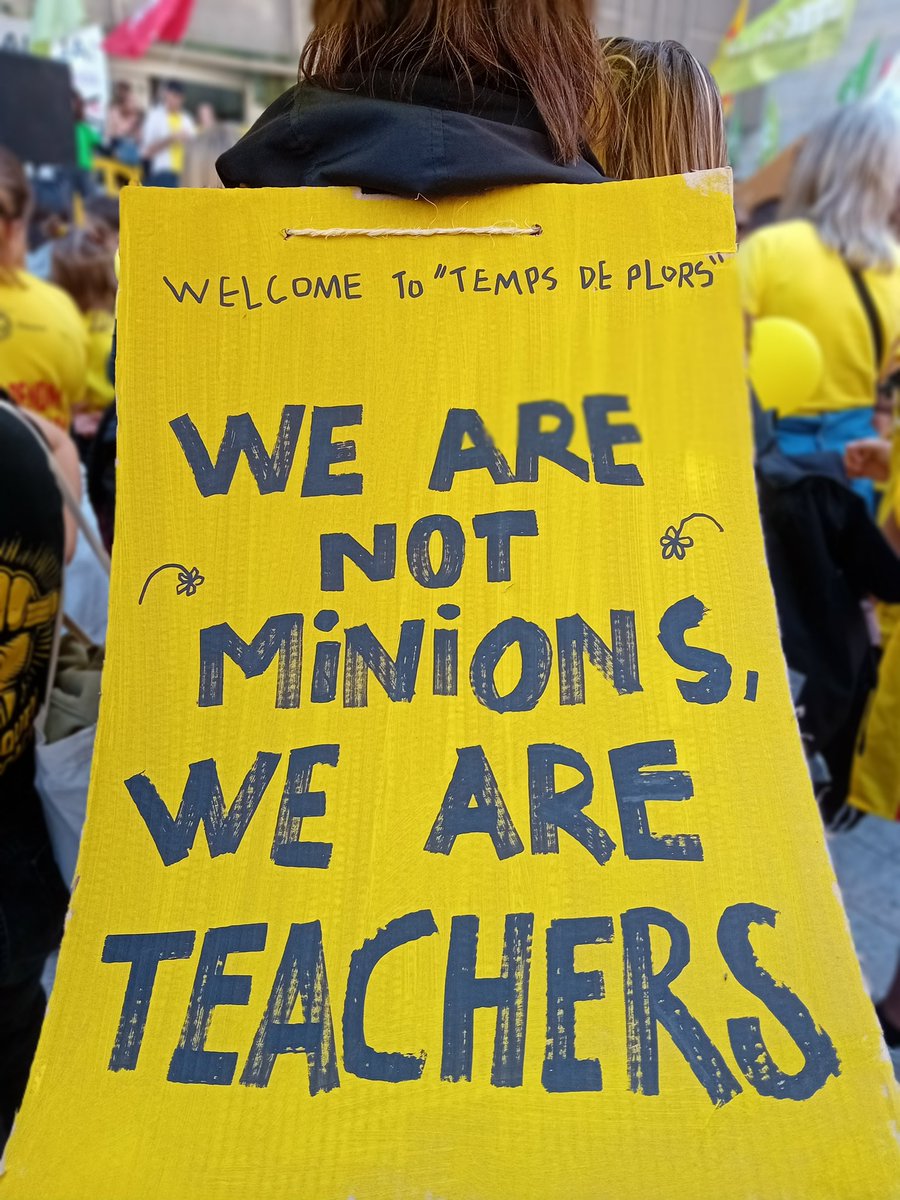 WELCOME TO "TEMPS DE PLORS"
WE ARE
NOT
MiNiONS,
WE ARE
TEACHERS